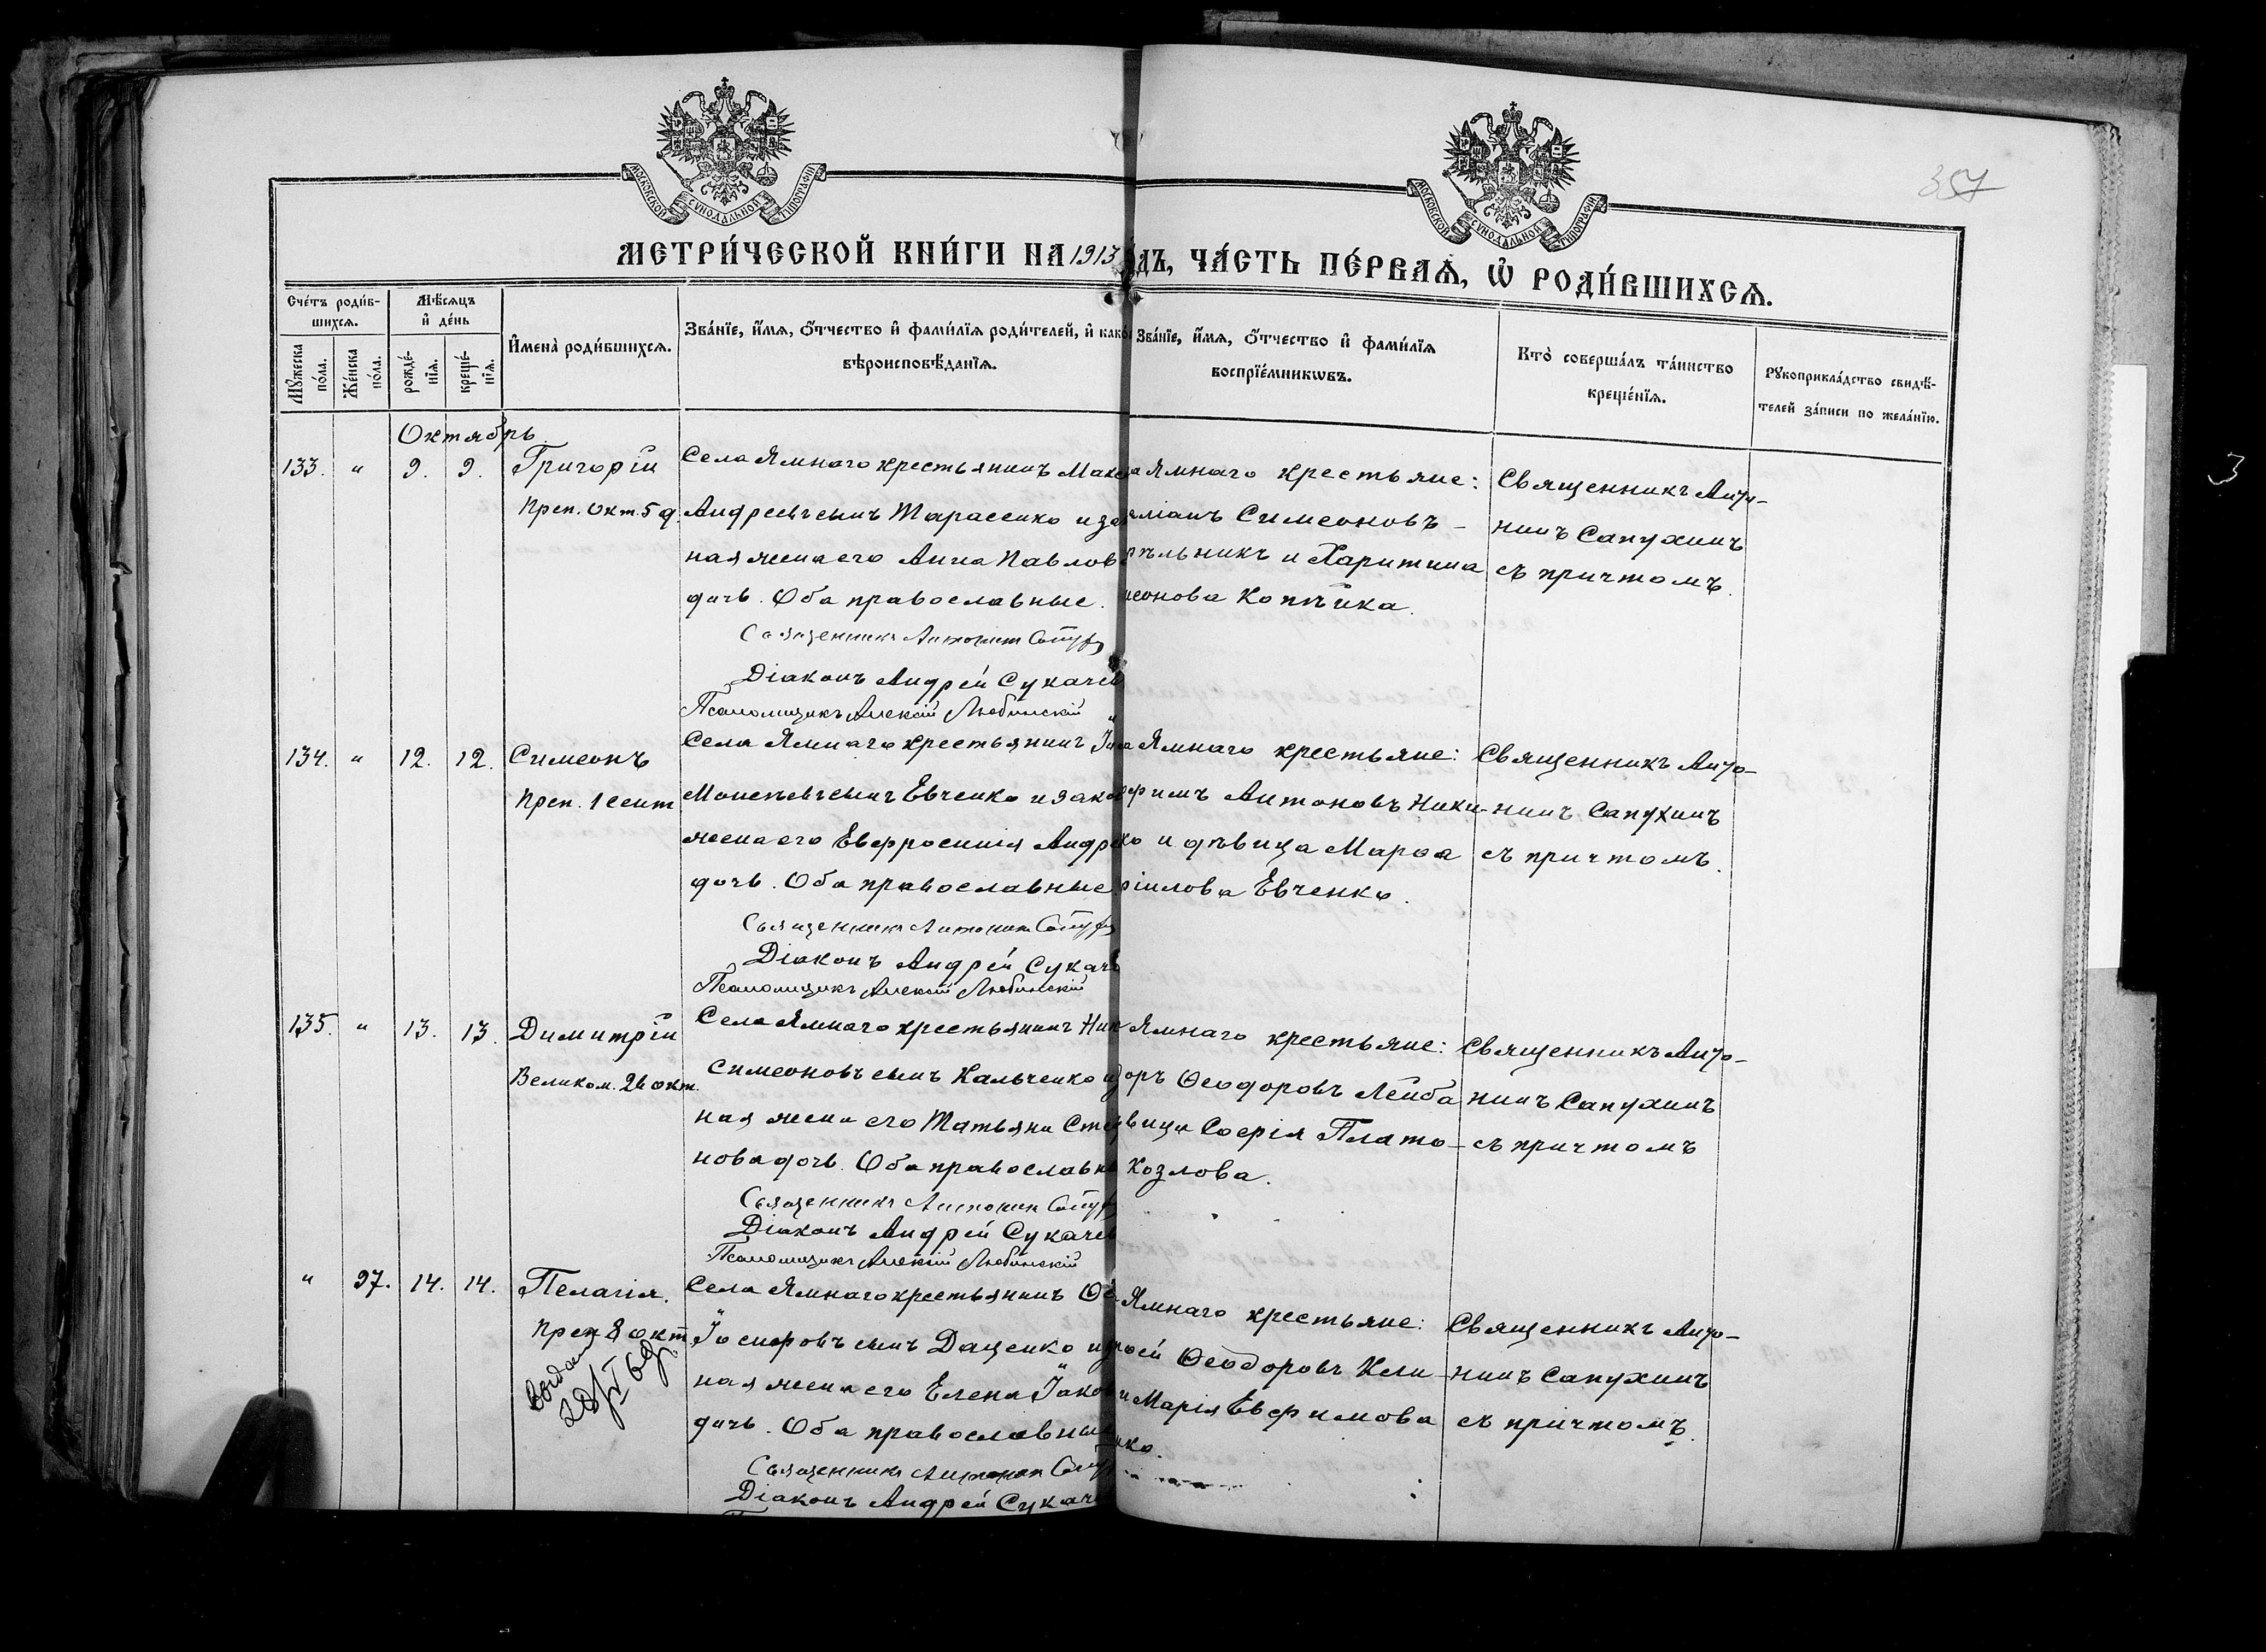 357
МОСКОВСКОЙ СѴНОДАЛЬНОЙ ТИПОГРАФІИ
МОСКОВСКОЙ СѴНОДАЛЬНОЙ ТИПОГРАФІИ
МЕТРИ́ЧЕСКОЙ КНИ́ГИ НА 1913 ДЪ, ЧА́СТЬ ПЕ́РВАѦ, Ѡ҆ РОДИ́ВШИХСѦ.
Сче́тъ роди́в-
шихсѧ.
Мꙋ́жеска по́ла.
Же́нска по́ла.
Мѣ́сѧцъ
и҆ де́нь
рожде́-
нїѧ.
креще́-
нїѧ.
И҆мена̀ роди́вшихсѧ.
Зва́нїе, и҆́мѧ, ѻ҆́тчество и҆ фами́лїѧ роди́телей, и҆ како́
вѣроисповѣ́данїѧ.
Зва́нїе, и҆́мѧ, ѻ҆́тчество и҆ фами́лїѧ
воспрїе́мникѡвъ.
Кто̀ соверша́лъ та́инство
креще́нїѧ.
Рꙋкоприкла́дство свидѣ́-
телей за́писи по жела́нїю.
Октябрь.
133. " 9. 9. Григорій
Преп. Окт. 5 д.
Села Ямнаго крестьянинъ Макс
Андреевъ сынъ Тарасенко и за
ная жена его Анна Павлов
дочь. Оба православные.
Священникъ Антонин
Діаконъ Андрей Сукачев
Псаломщикъ Алексій Любинскій
Ямнаго крестьяне:
Симеоновъ -
и Харитина
Копѣйка.
Священникъ Анто-
нинъ Сапухинъ
съ причтомъ.
134. " 12. 12. Симеонъ
Преп. 1 сент
Села Ямнаго крестьянинъ
Моисеевъ сынъ Евченко и закон
жена его Евфросинія Андре
дочь. Оба православные.
Священникъ Антонин
Діаконъ Андрей Сукаче
Псаломщикъ Алексій Любинскій
Ямнаго крестьяне:
фимъ Антоновъ Ники-
ко и дѣвица Марѳа
іилова Евченко.
Священникъ Анто-
нинъ Сапухинъ
съ причтомъ.
135. " 13. 13. Димитрій
Великом. 26 окт.
Села Ямнаго крестьянинъ Ник
Симеоновъ сынъ Кальченко и
ная жена его Татьяна Сте
нова дочь. Оба православн
Священникъ Антонин
Діаконъ Андрей Сукачев
Псаломщикъ Алексій Любинскій
Ямнаго крестьяне:
оръ Ѳеодоровъ Лейба
вица Софія Плато-
Козлова.
Священникъ Анто-
нинъ Сапухинъ
съ причтомъ
" 97. 14. 14. Пелагія.
Преп 8 окт
Села Ямнаго крестьянинъ Ѳе
Іосифовъ сынъ Даценко и
ная жена его Елена Іаков
дочь. Оба православные
Священникъ Антонин
Діаконъ Андрей Сукаче
Ямнаго крестьяне:
Ѳеодоровъ Кли-
и Марія Евфимова
нко.
Священникъ Анто-
нинъ Сапухинъ
съ причтомъ.
3